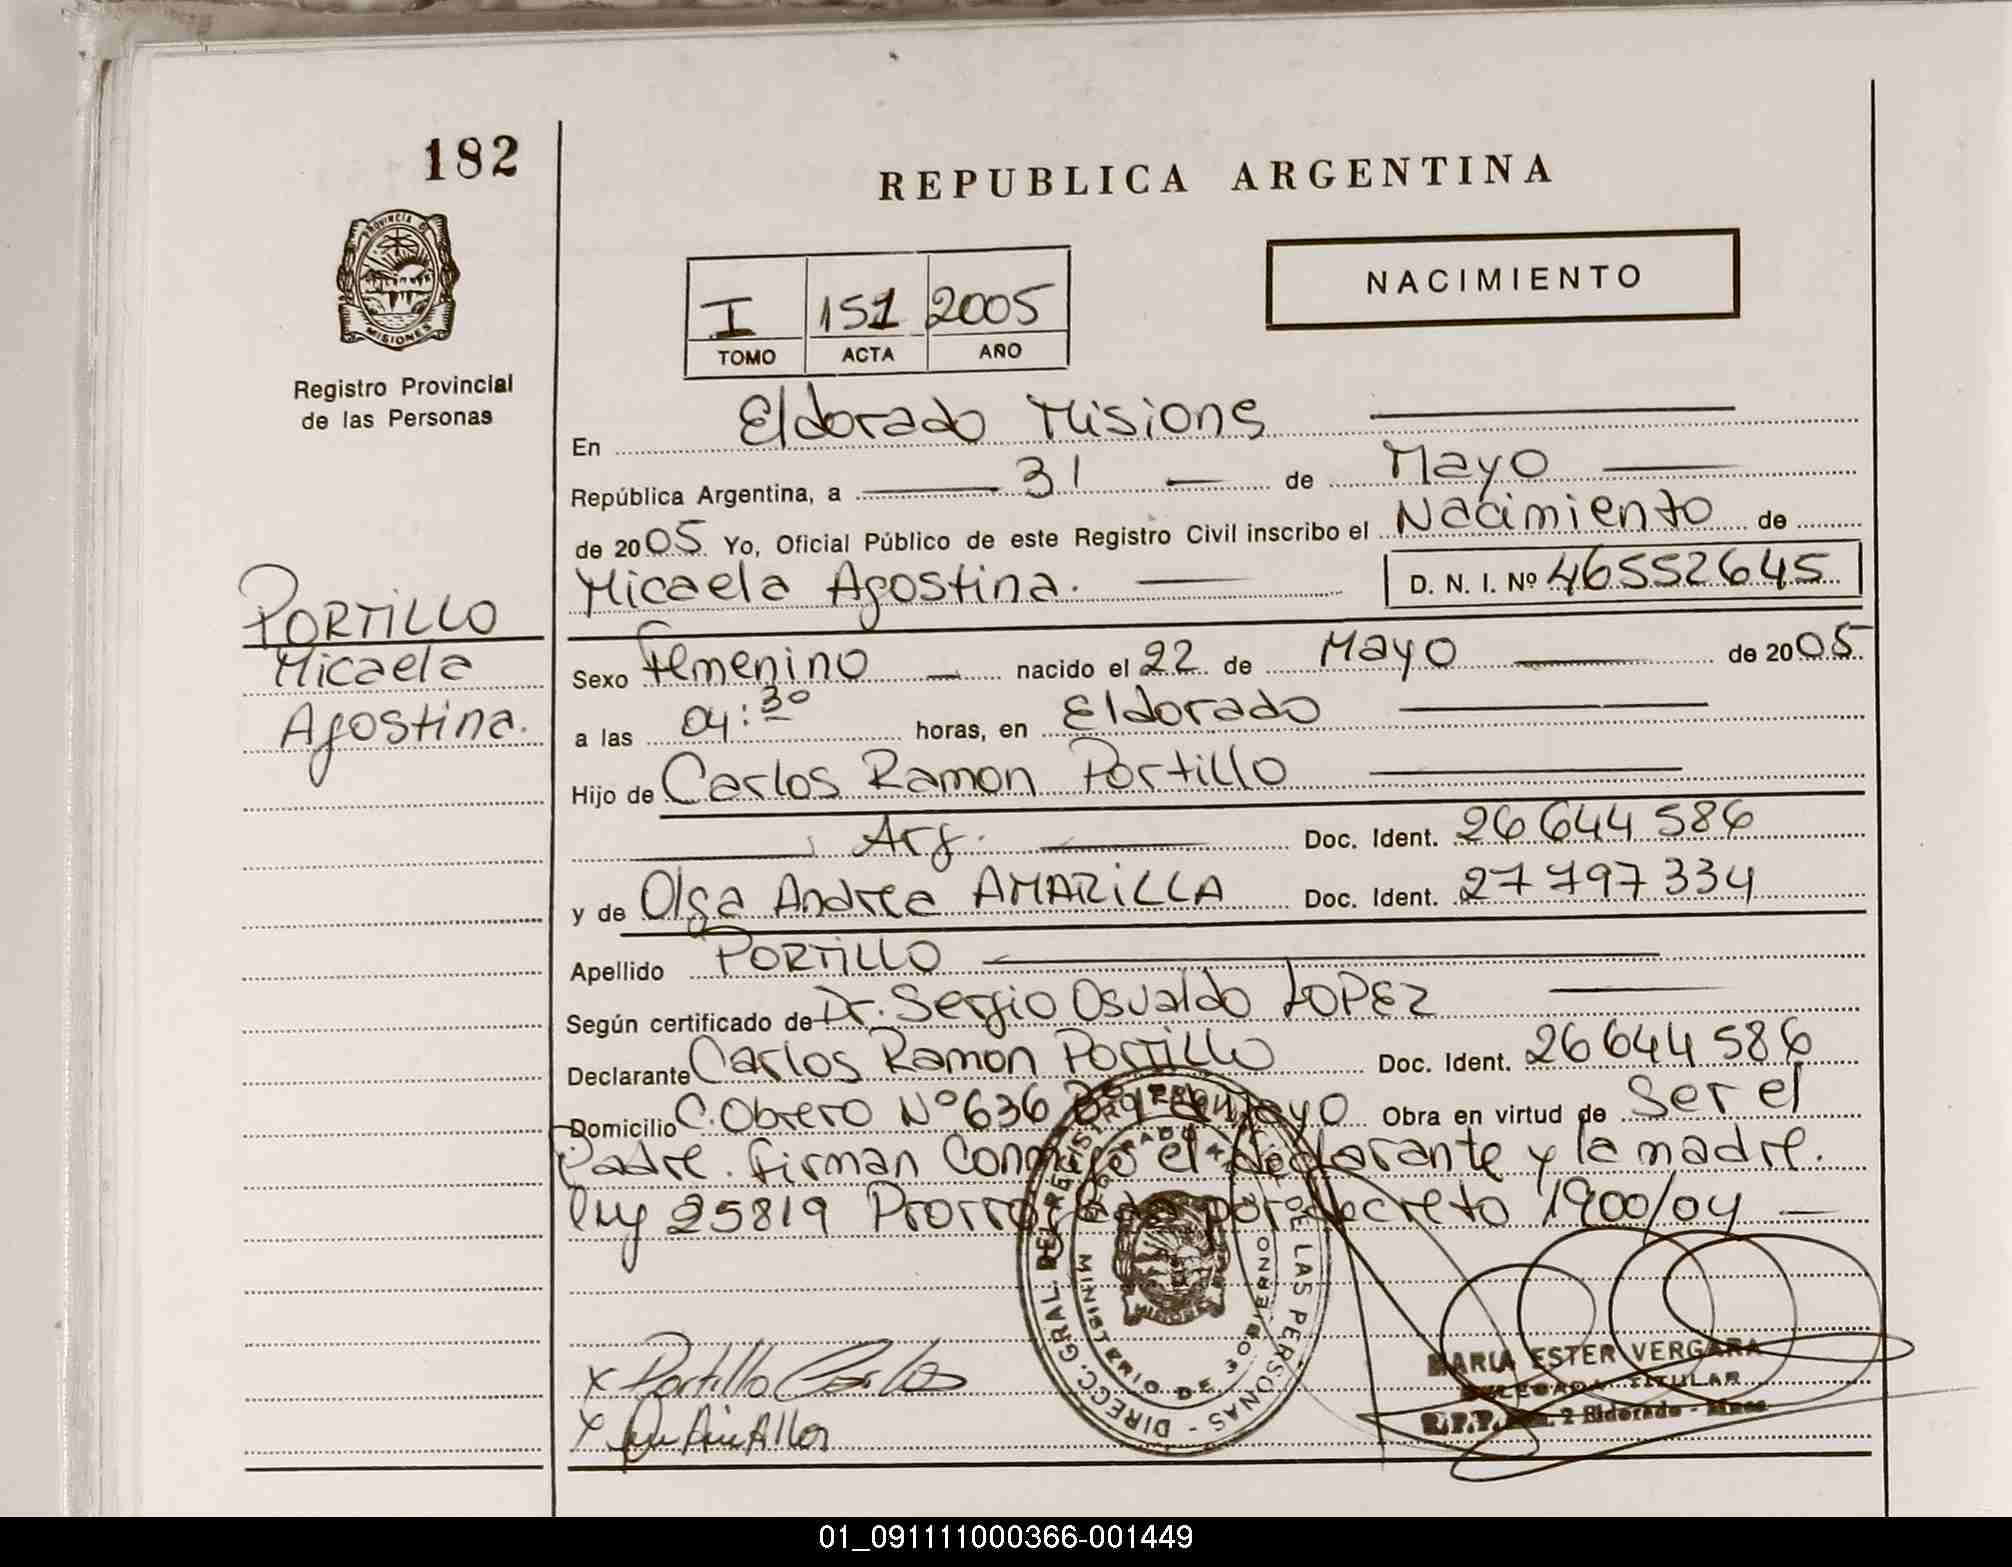 182
REPUBLICA ARGENTINA
PROVINCIA DE
MISIONES
I 151 2005
TOMO ACTA AÑO
NACIMIENTO
Registro Provincial
de las Personas
En Eldorado Misions
República Argentina, a 31 de Mayo
de 2005 Yo, Oficial Público de este Registro Civil inscribo el Nacimiento de
Micaela Agostina. D. N. I. Nº 46552645
PORTILLO
Micaela
Agostina.
Sexo Femenino nacido el 22 de Mayo de 2005
a las 04:30 horas, en Eldorado
Hijo de Carlos Ramon Portillo
Arg. Doc. Ident. 26 644 586
y de Olga Andrea AMARILLA Doc. Ident. 27 797 334
Apellido PORTILLO
Según certificado de Dr. Sergio Osvaldo LOPEZ
Declarante Carlos Ramon Portillo Doc. Ident. 26 644 586
Domicilio C. Obrero Nº 636 Obra en virtud de Ser el
Padre. firman el declarante y la madre.
ley 25819 Prorrogada por decreto 1900/04
DIRECC. GRAL. DEL REGISTRO PROV. DE LAS PERSONAS
MINISTERIO DE GOBIERNO
x Portillo Carlos
x
MARIA ESTER VERGARA
DELEGADA TITULAR
R.P.P. 2 Eldorado - Mnes.
01_091111000366-001449